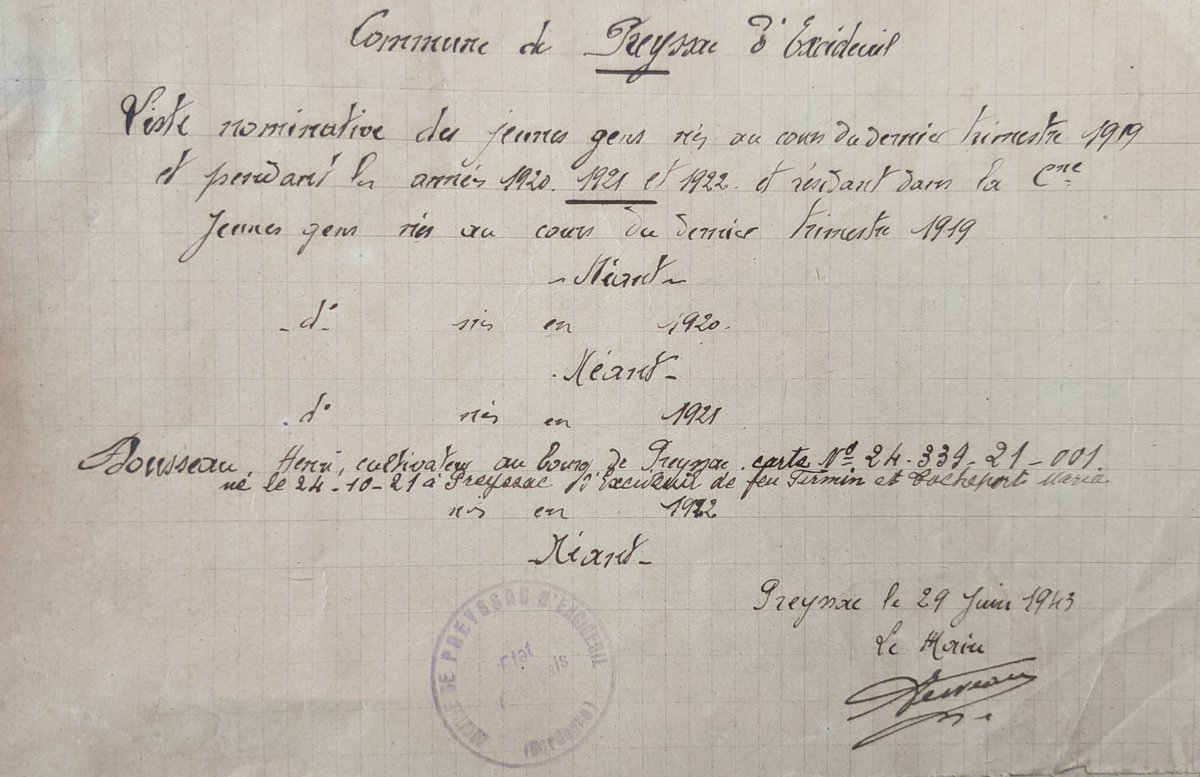 Commune de Preyssac d'Excideuil
Liste nominative des jeunes gens nés au cours du dernier trimestre 1919
et pendant les années 1920. 1921 et 1922. et résidant dans la Cne
Jeunes gens nés au cours du dernier trimestre 1919
- Néant -
- d° - nés en 1920.
- Néant -
d° nés en 1921
Bousseau, Henri, cultivateur au bourg de Preyssac. carte N° 24-339-21-001.
né le 24-10-21 à Preyssac d'Excideuil de feu Firmin et Maria
nés en 1922
- Néant -
Preyssac le 29 Juin 1943
Le Maire
MAIRIE DE PREYSSAC D'EXCIDEUIL
Etat
Français
(Dordogne)